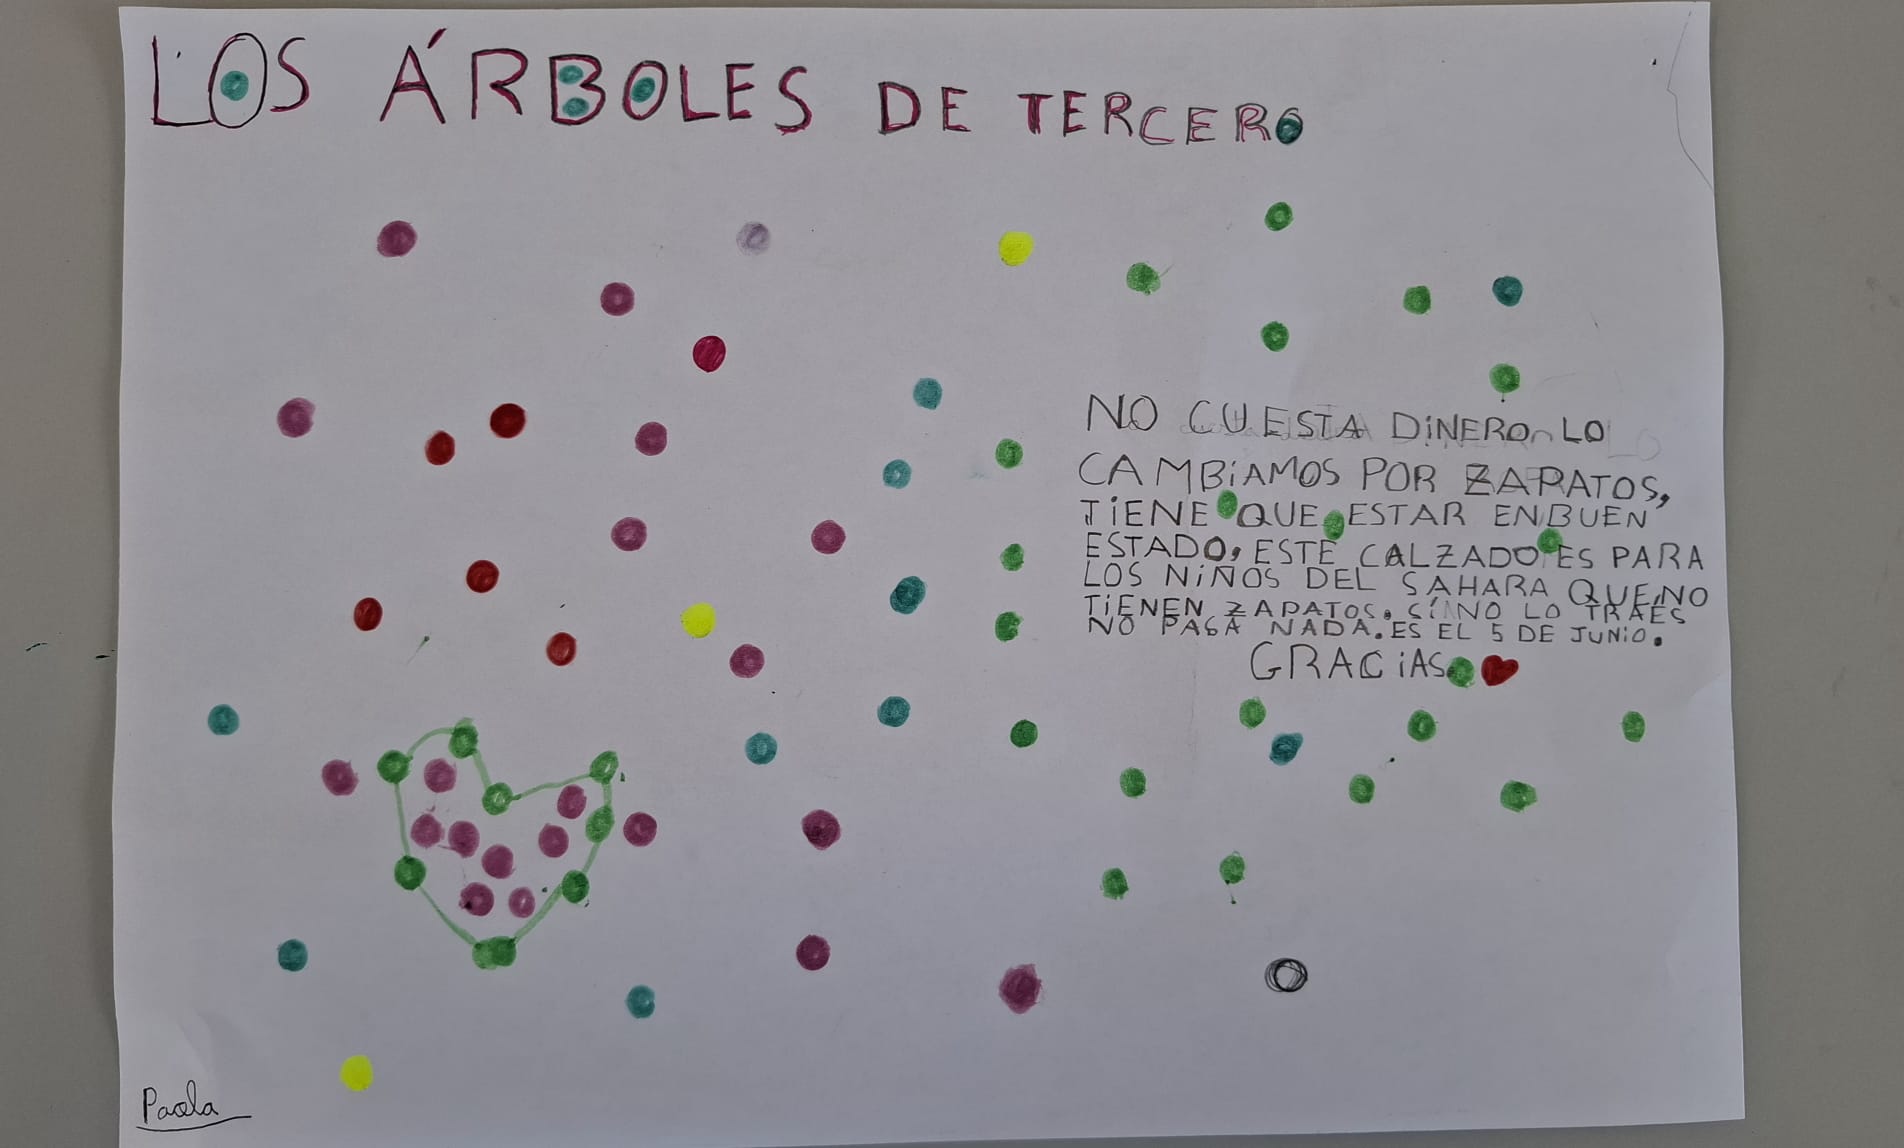 LOS ÁRBOLES DE TERCERO
NO CUESTA DINERO LO
CAMBIAMOS POR ZAPATOS,
TIENE QUE ESTAR EN BUEN
ESTADO, ESTE CALZADO ES PARA
LOS NIÑOS DEL SAHARA QUE NO
TIENEN ZAPATOS. SÍ NO LO TRAES
NO PASA NADA. ES EL 5 DE JUNIO.
GRACIAS.
Paola